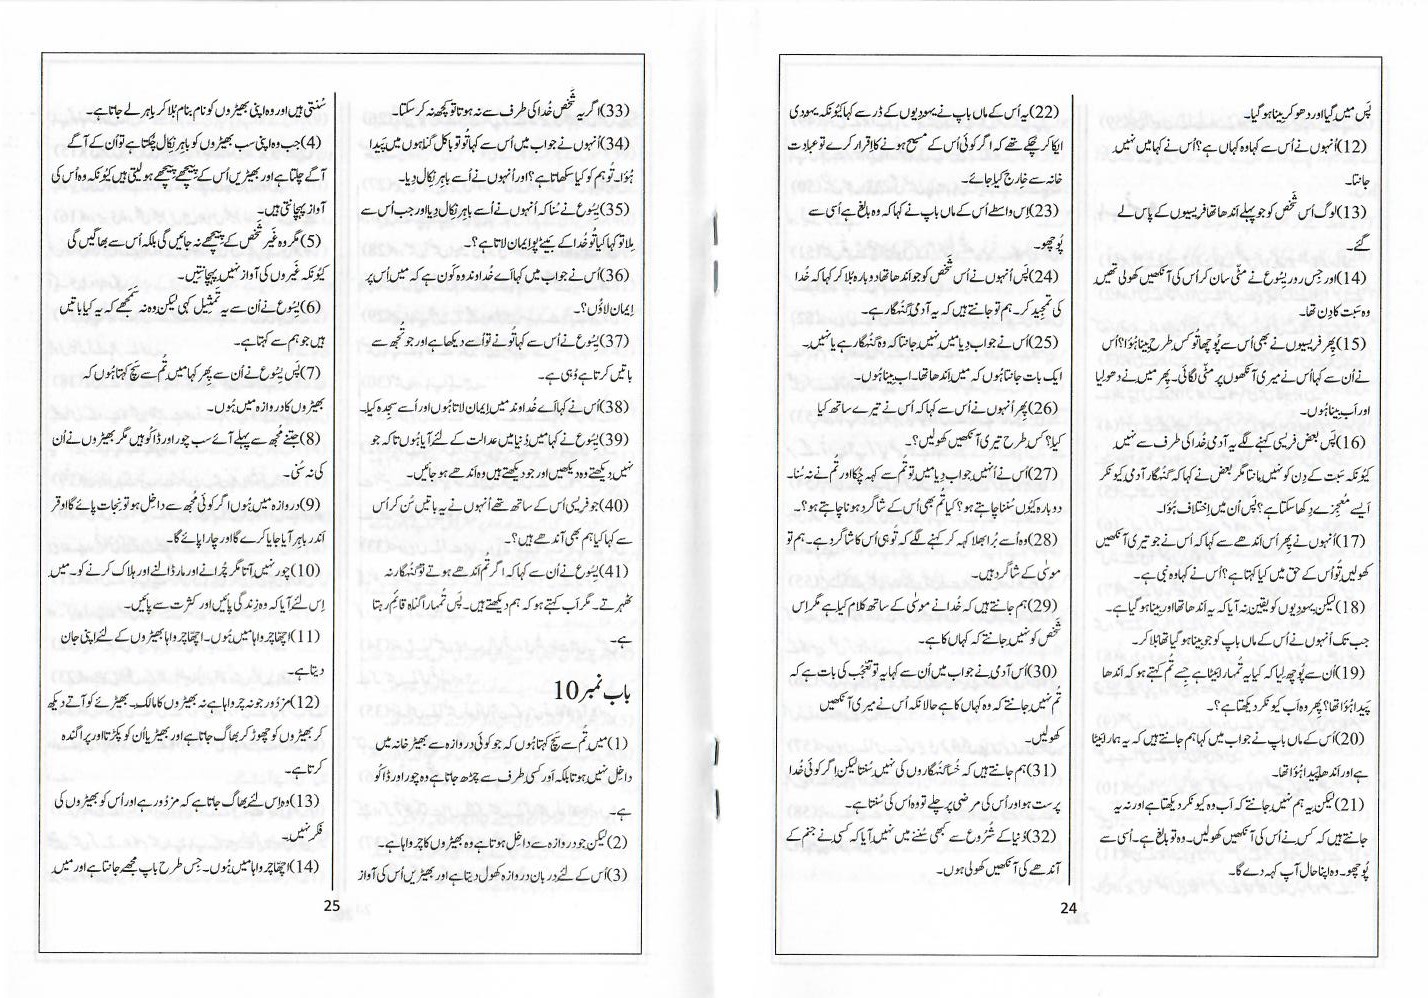 پَس مَیں گیا اور دھو کر بِینا ہو گیا۔
(12) اُنہوں نے اُس سے کہا وہ کہاں ہے؟ اُس نے کہا مَیں نہیں
جانتا۔
(13) لوگ اُس شخص کو جو پہلے اَندھا تھا فریسیوں کے پاس لے
گئے۔
(14) اور جِس روز یِسُوع نے مٹی سان کر اُس کی آنکھیں کھولی تھیں
وہ سَبت کا دِن تھا۔
(15) پِھر فریسیوں نے بھی اُس سے پُوچھا تُو کس طرح بِینا ہُوا؟ اُس
نے اُن سے کہا اُس نے میری آنکھوں پر مٹّی لگائی۔ پِھر مَیں نے دھو لیا
اور اَب بِینا ہُوں۔
(16) پَس بعض فریسی کہنے لگے یہ آدمی خُدا کی طرف سے نہیں
کیونکہ سَبت کے دِن کو نہیں مانتا مگر بعض نے کہا کہ گُنہگار آدمی کیونکر
اَیسے مُعجِزے دِکھا سکتا ہے؟ پَس اُن میں اِختلاف ہُوا۔
(17) اُنہوں نے پِھر اُس اَندھے سے کہا کہ اُس نے جو تیری آنکھیں
کھولیں تُو اُس کے حق میں کیا کہتا ہے؟ اُس نے کہا وہ نبی ہے۔
(18) لیکن یہودیوں کو یقین نہ آیا کہ یہ اَندھا تھا اور بِینا ہو گیا ہے۔
جب تک اُنہوں نے اُس کے ماں باپ کو جو بِینا ہو گیا تھا بُلا کر۔
(19) اُن سے پُوچھ لیا کہ کیا یہ تُمہارا بیٹا ہے جِسے تُم کہتے ہو کہ اَندھا
پیدا ہُوا تھا؟ پِھر وہ اَب کیونکر دیکھتا ہے؟۔
(20) اُس کے ماں باپ نے جواب میں کہا ہم جانتے ہیں کہ یہ ہمارا بیٹا
ہے اور اَندھا پیدا ہُوا تھا۔
(21) لیکن یہ ہم نہیں جانتے کہ اَب وہ کیونکر دیکھتا ہے اور نہ یہ
جانتے ہیں کہ کس نے اُس کی آنکھیں کھولیں۔ وہ تو بالغ ہے۔ اُسی سے
پُوچھو۔ وہ اپنا حال آپ کہہ دے گا۔
(22) یہ اُس کے ماں باپ نے یہودیوں کے ڈر سے کہا کیونکہ یہودی
ایکا کر چُکے تھے کہ اگر کوئی اُس کے مسیح ہونے کا اِقرار کرے تو عِبادت
خانہ سے خارِج کیا جائے۔
(23) اِس واسطے اُس کے ماں باپ نے کہا کہ وہ بالغ ہے اُسی سے
پُوچھو۔
(24) پَس اُنہوں نے اُس شخص کو جو اَندھا تھا دوبارہ بُلا کر کہا کہ خُدا
کی تمجید کر۔ ہم تو جانتے ہیں کہ یہ آدمی گُنہگار ہے۔
(25) اُس نے جواب دِیا مَیں نہیں جانتا کہ وہ گُنہگار ہے یا نہیں۔
ایک بات جانتا ہُوں کہ مَیں اَندھا تھا۔ اب بِینا ہُوں۔
(26) پِھر اُنہوں نے اُس سے کہا کہ اُس نے تیرے ساتھ کیا
کیا؟ کس طرح تیری آنکھیں کھولیں؟۔
(27) اُس نے اُنہیں جواب دِیا مَیں تو تُم سے کہہ چُکا اور تُم نے نہ سُنا۔
دوبارہ کیُوں سُننا چاہتے ہو؟ کیا تُم بھی اُس کے شاگرد ہونا چاہتے ہو؟۔
(28) وہ اُسے بُرا بھلا کہہ کر کہنے لگے کہ تُو ہی اُس کا شاگرد ہے۔ ہم تو
موسیٰ کے شاگرد ہیں۔
(29) ہم جانتے ہیں کہ خُدا نے موسیٰ کے ساتھ کلام کیا ہے مگر اِس
شخص کو نہیں جانتے کہ کہاں کا ہے۔
(30) اُس آدمی نے جواب میں اُن سے کہا یہ تو تعجُّب کی بات ہے کہ
تُم نہیں جانتے کہ وہ کہاں کا ہے حالانکہ اُس نے میری آنکھیں
کھولیں۔
(31) ہم جانتے ہیں کہ خُدا گُنہگاروں کی نہیں سُنتا لیکن اگر کوئی خُدا
پرست ہو اور اُس کی مرضی پر چلے تو وہ اُس کی سُنتا ہے۔
(32) دُنیا کے شُروع سے کبھی سُننے میں نہیں آیا کہ کسی نے جنم کے
اَندھے کی آنکھیں کھولی ہوں۔
24
(33) اگر یہ شخص خُدا کی طرف سے نہ ہوتا تو کُچھ نہ کر سکتا۔
(34) اُنہوں نے جواب میں اُس سے کہا تُو تو بالکل گناہوں میں پَیدا
ہُوا۔ تُو ہم کو کیا سکھاتا ہے؟ اور اُنہوں نے اُسے باہر نِکال دِیا۔
(35) یِسُوع نے سُنا کہ اُنہوں نے اُسے باہر نِکال دِیا اور جب اُس سے
مِلا تو کہا کیا تُو خُدا کے بیٹے پر اِیمان لاتا ہے؟۔
(36) اُس نے جواب میں کہا اَے خُداوند وہ کون ہے کہ مَیں اُس پر
اِیمان لاؤں؟۔
(37) یِسُوع نے اُس سے کہا تُو نے تو اُسے دیکھا ہے اور جو تُجھ سے
باتیں کرتا ہے وُہی ہے۔
(38) اُس نے کہا اَے خُداوند مَیں اِیمان لاتا ہُوں اور اُسے سجدہ کیا۔
(39) یِسُوع نے کہا مَیں دُنیا میں عدالت کے لئے آیا ہُوں تاکہ جو
نہیں دیکھتے وہ دیکھیں اور جو دیکھتے ہیں وہ اَندھے ہو جائیں۔
(40) جو فریسی اُس کے ساتھ تھے اُنہوں نے یہ باتیں سُن کر اُس
سے کہا کیا ہم بھی اَندھے ہیں؟۔
(41) یِسُوع نے اُن سے کہا کہ اگر تُم اَندھے ہوتے تو گُنہگار نہ
ٹھہرتے۔ مگر اَب کہتے ہو کہ ہم دیکھتے ہیں۔ پَس تُمہارا گُناہ قائم رہتا
ہے۔
باب نمبر 10
(1) مَیں تُم سے سچ کہتا ہُوں کہ جو کوئی دروازہ سے بھیڑ خانہ میں
داخِل نہیں ہوتا بلکہ اَور کسی طرف سے چڑھ جاتا ہے وہ چور اور ڈاکُو
ہے۔
(2) لیکن جو دروازہ سے داخِل ہوتا ہے وہ بھیڑوں کا چرواہا ہے۔
(3) اُس کے لئے دربان دروازہ کھول دیتا ہے اور بھیڑیں اُس کی آواز
سُنتی ہیں اور وہ اپنی بھیڑوں کو نام بنام بُلا کر باہر لے جاتا ہے۔
(4) جب وہ اپنی سب بھیڑوں کو باہر نِکال چُکتا ہے تو اُن کے آگے
آگے چلتا ہے اور بھیڑیں اُس کے پیچھے پیچھے ہو لیتی ہیں کیونکہ وہ اُس کی
آواز پہچانتی ہیں۔
(5) مگر وہ غَیر شخص کے پیچھے نہ جائیں گی بلکہ اُس سے بھاگیں گی
کیونکہ غَیروں کی آواز نہیں پہچانتیں۔
(6) یِسُوع نے اُن سے یہ تمثیل کہی لیکن وہ نہ سمجھے کہ یہ کیا باتیں
ہیں جو ہم سے کہتا ہے۔
(7) پَس یِسُوع نے اُن سے پِھر کہا مَیں تُم سے سچ کہتا ہُوں کہ
بھیڑوں کا دروازہ مَیں ہُوں۔
(8) جِتنے مُجھ سے پہلے آئے سب چور اور ڈاکُو ہیں مگر بھیڑوں نے اُن
کی نہ سُنی۔
(9) دروازہ مَیں ہُوں اگر کوئی مُجھ سے داخِل ہو تو نجات پائے گا اور
اَندر باہر آیا جایا کرے گا اور چارا پائے گا۔
(10) چور نہیں آتا مگر چُرانے اور مار ڈالنے اور ہلاک کرنے کو۔ مَیں
اِس لئے آیا کہ وہ زِندگی پائیں اور کثرت سے پائیں۔
(11) اچھّا چرواہا مَیں ہُوں۔ اچھّا چرواہا بھیڑوں کے لئے اپنی جان
دیتا ہے۔
(12) مزدُور جو نہ چرواہا ہے نہ بھیڑوں کا مالک۔ بھیڑئے کو آتے دیکھ
کر بھیڑوں کو چھوڑ کر بھاگ جاتا ہے اور بھیڑیا اُن کو پکڑتا اور پراگندہ
کرتا ہے۔
(13) وہ اِس لئے بھاگ جاتا ہے کہ مزدُور ہے اور اُس کو بھیڑوں کی
فکر نہیں۔
(14) اچھّا چرواہا مَیں ہُوں۔ جِس طرح باپ مجھے جانتا ہے اور مَیں
25